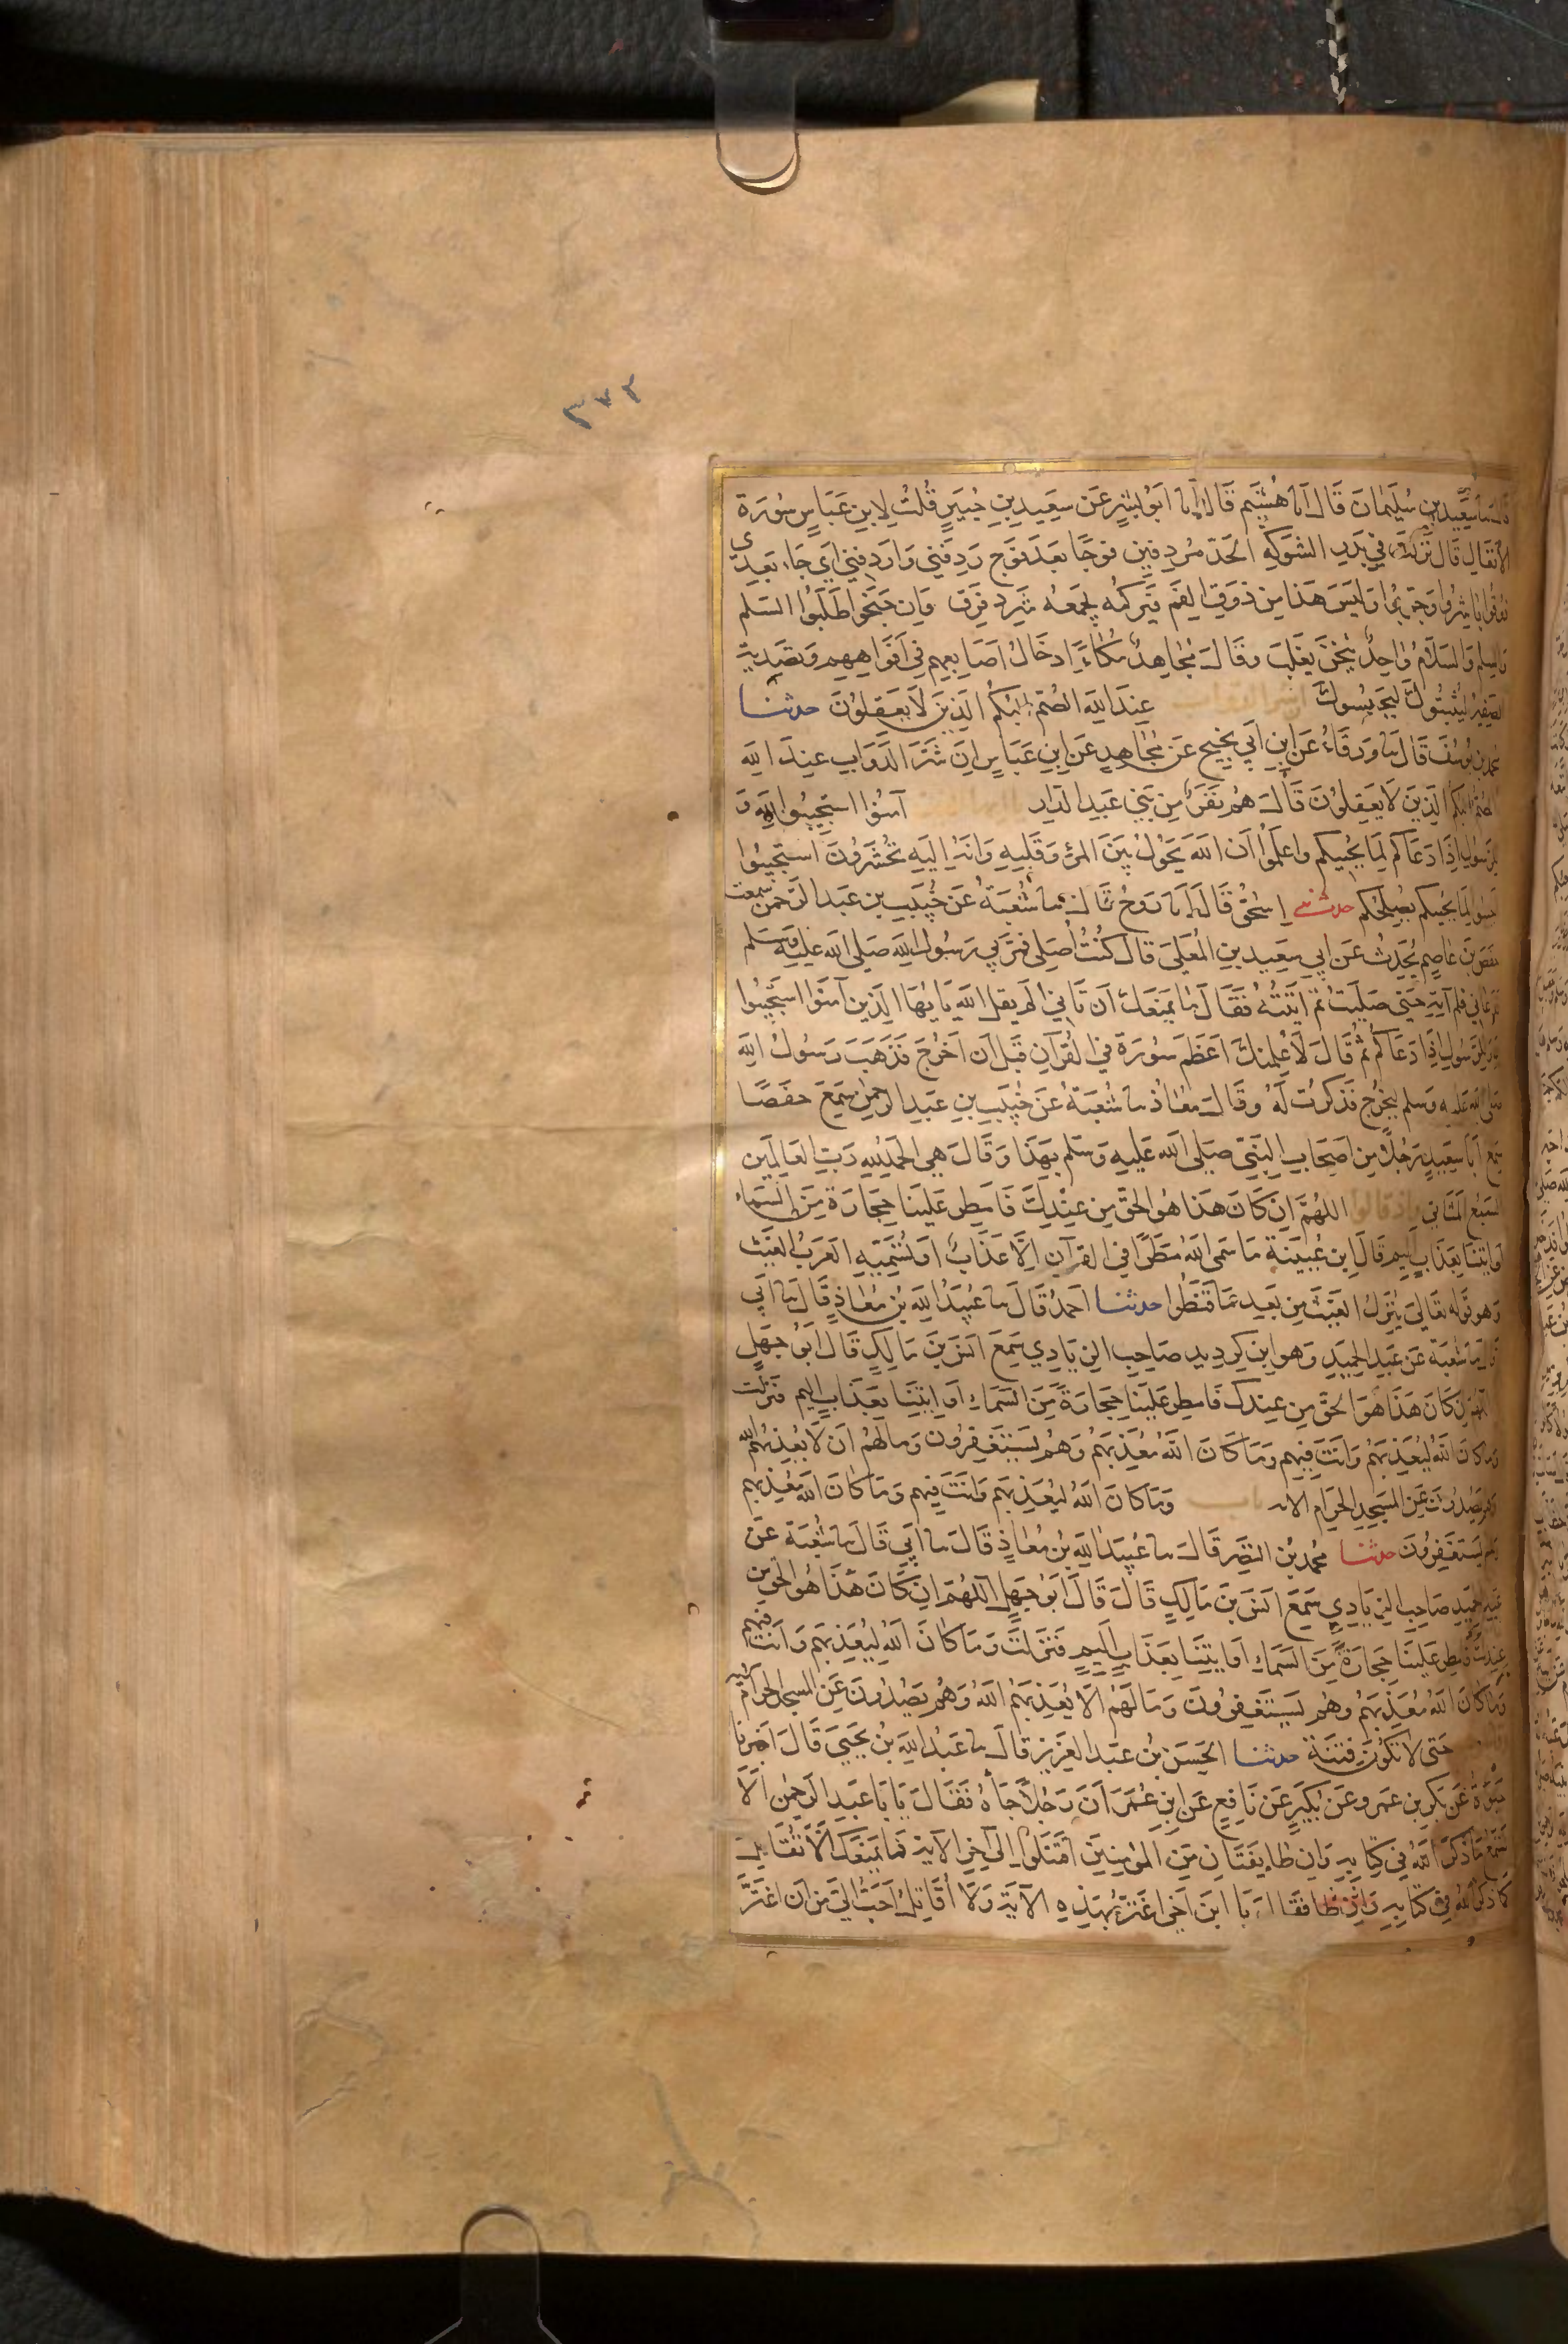 ٣٧٢
قال نا سعيد بن سُلَيمَانَ قَالَ انا هُشَيم قَالَ انا ابَوُ بشرٍ عَن سَعِيدِ بنِ جُبَيرٍ قُلتُ لِابنِ عَبَاسٍ سُورَة
الأنفَالِ قَال نَزَلَت في بَدرٍ الشوَكة الحَدّ مُردفين فوجًا بعَدَ فَوج رَدِفَني وَاَردَفني اَي جَاء بَعدِي
ذوقوا باشروا وجَرّبوا وَليسَ هَذا مِن ذوقِ الفَم فيَركُمه يجمَعه شَرد فرق وَاِن جَنَحُوا طَلَبُوا السَلم
والسِلم وَالسَلَامُ وَاحِدٌ يُثخنَ يَغلِبَ وقَالَ مُجَاهِدٌ مُكَاءً اِدخَالُ اصَابِعِهِم فِي اَفوَاهِهِم وَتصَدِيَة
الصَفير ليُثبتُوكَ ليَحبِسُوكَ عِندَ اللّهِ الصُمّ البُكمُ الذِينَ لاَ يَعقِلوُنَ حدثنا
محمد بن يُوسُفَ قَالَ نا وَرقَاءُ عَن ابنِ اَبي نَجِيح عَن مُجَاهِدٍ عَن ابنِ عَبَاسٍ اِنَ شَرَ الدَوَابِ عِندَ اللّهِ
الصُمّ البكم الذِينَ لاَ يعَقِلوُنَ قَالَ هُم نَفَرٌ مِن بَني عَبدِ الدَارِ آمنُوا استَجِيبُوا لِلّهِ وَ
للرَسُولِ اِذَا دَعَاكُم لِمَا يُحييكم واعلَموُا اَن اللّهَ يَحُولُ بَينَ المَرءِ وَقَلبِهِ وَانَه اِلَيهِ تُحشَرُونَ استَجيبُوا
اَجيبوا لِمَا يُحييكم يُصلِحُكم حدثني اِسحٰق قَالَ انا رَوحٌ قَالَ نا شُعبَةُ عَن خُبَيبِ بن عَبد الرّحمنِ سمعت
حَفصَ بنَ عَاصِم يُحَدِثُ عَن اَبي سَعِيدِ بنِ المُعَلىَ قال كُنتُ اُصَلي فمَرَ بي رَسُولُ اللّهِ صَلى اللّه عَليهِ وسَلم
فدَعاني فلم آتِهِ حَتي صَليتُ ثمّ اَتَيتُهُ فَقَالَ مَا مَنعَكَ اَن تَاتي اَلَم يقل اللّهَ يَا اَيهَا الذِينَ آمَنُوا استَجيبُوا
للّه وَللرَسُولِ اِذَا دَعَاكُم ثم قَالَ لَاُعَلِمنكَ اَعظَمَ سُورَة في القُرآنِ قَبلَ اَن اَخرُجَ فَذَهَبَ رَسُولُ اللّهِ
صَلى اللّه عَليه وَسلم ليَخرُجَ فذَكرتُ لَهُ وقَالَ معَاذٌ نا شُعبَةُ عَن خُبَيبِ بنِ عَبدِ الرحمٰنِ سَمِعَ حفَصًا
سَمِعَ اَبَا سَعِيدٍ رَجُلًا مِن اَصحَابِ النَبِي صَلى اللّه عَليهِ وَسَلم بِهَذَا وَقَالَ هِي الحَمدُ لِلّهِ رَبِ العَالَمين
السَبعُ المَثَاني واذ قالوا اللهُمَ اِن كَانَ هَذا هُوَ الحَقَ مِن عِندِكَ فَامطِر عَلَينَا حِجَارَة مِنَ السَمَاءِ
اَو ائتِنَا بِعَذَابٍ اَليمٍ قَالَ ابنُ عُيَينَة مَا سَمى اللّهُ مَطَرًا في القرآن اِلاَ عَذَابًا وتُسَمّيهِ العَرَبُ الغَيثَ
وَهو قَوله تعَالىَ يُنَزلُ الغَيثَ مِن بَعدِ مَا قَنَطُوا حدثنا احمدُ قَالَ نا عُبَيدُ اللّهِ بنُ مُعَاذٍ قَالَ نا اَبي
قَالَ نا شُعبَة عَن عَبدِ الحَميدِ وَهو ابن كردِيد صَاحِبِ الزيَادِي سَمِعَ اَنَسَ بنَ مَالِكٍ قَالَ اَبُو جَهلٍ
اللهُمّ اِن كَانَ هَذَا هُوَ الحَقَ مِن عِندِكَ فَامطِر عَلَينَا حِجَارَةً مِنَ السَمَاءِ اَو ائتِنَا بِعَذَابٍ اليم فنَزلت
وَمَا كانَ اللّهُ لِيُعَذِبَهُم وَاَنتَ فِيهِم وَمَا كَانَ اللّهُ مُعَذِبَهُم وَهُم يَستَغفِرُون وَما لَهُم اَن لاَ يُعَذبَهُم اللّه
وَهُم يَصُدونَ عَنِ المَسجِدِ الحَرَامِ الايه باب وَمَا كَانَ اللّهُ ليُعَذِبَهُم وَاَنتَ فِيهم وَمَا كَانَ اللّه مُعَذِبَهم
وَهُم يَستَغفِرُونَ حدثنا محمدُ بنُ النَضرِ قَالَ نا عُبَيدُ اللّهِ بنُ مُعَاذٍ قَالَ نا اَبي قَالَ نا شُعبَة عَن
عَبدِ الحَميدِ صَاحِبِ الزيَادِي سَمِعَ اَنَسَ بنَ مَالِكٍ قَالَ قَالَ اَبُو جَهلٍ اللهُمَ اِن كَانَ هٰذَا هُوَ الحَقَ مِن
عِندِكَ فَامطِر عَلَينَا حِجَارَةً مِنَ السَمَاءِ اَو ائتِنَا بِعَذَابٍ اَليمٍ فنَزلَت وَمَا كَانَ اللّهُ ليُعَذِبَهُم وَاَنتَ فيهم
وَمَا كَانَ اللّهُ مُعَذِبَهُم وَهُم يَستَغفِرُونَ وَمَا لَهُم اَلاَ يُعَذِبَهُمُ اللّهُ وَهُم يَصُدُونَ عَنِ المَسجِدِ الحَرَامِ الايه
حَتى لاَ تَكُونَ فِتنَة حدثنا الحَسَنُ بنُ عَبدِ العَزيز قَالَ نا عَبدُ اللّهِ بنُ يَحيىَ قَالَ اخبرنا
حَيوَةُ عَن بَكرِ بنِ عَمرو عَن بُكَيرٍ عَن نَافِعٍ عَن ابنِ عُمَرَ اَنَ رَجُلاً جَاءَهُ فَقَالَ يَا اَبَا عَبدِ الرَحمٰنِ اَلاَ
تَسمَعُ مَا ذَكَرَ اللّهُ فِي كِتَابِهِ وَاِن طَائِفَتَانِ مِنَ المُؤمِنِينَ اقتَتَلُوا اِلى آخِرِ الآيَة فمَا يَمنَعُكَ اَلاَ تُقَاتِلَ
كَمَا ذَكَرَ اللّهُ في كِتَابِهِ فقَالَ يَا ابنَ اَخِي اَغتَرُ بِهَذِهِ الآيَةِ وَلاَ اُقَاتِلُ اَحَبُ اِليَ مِن اَن اَغتَرَّ